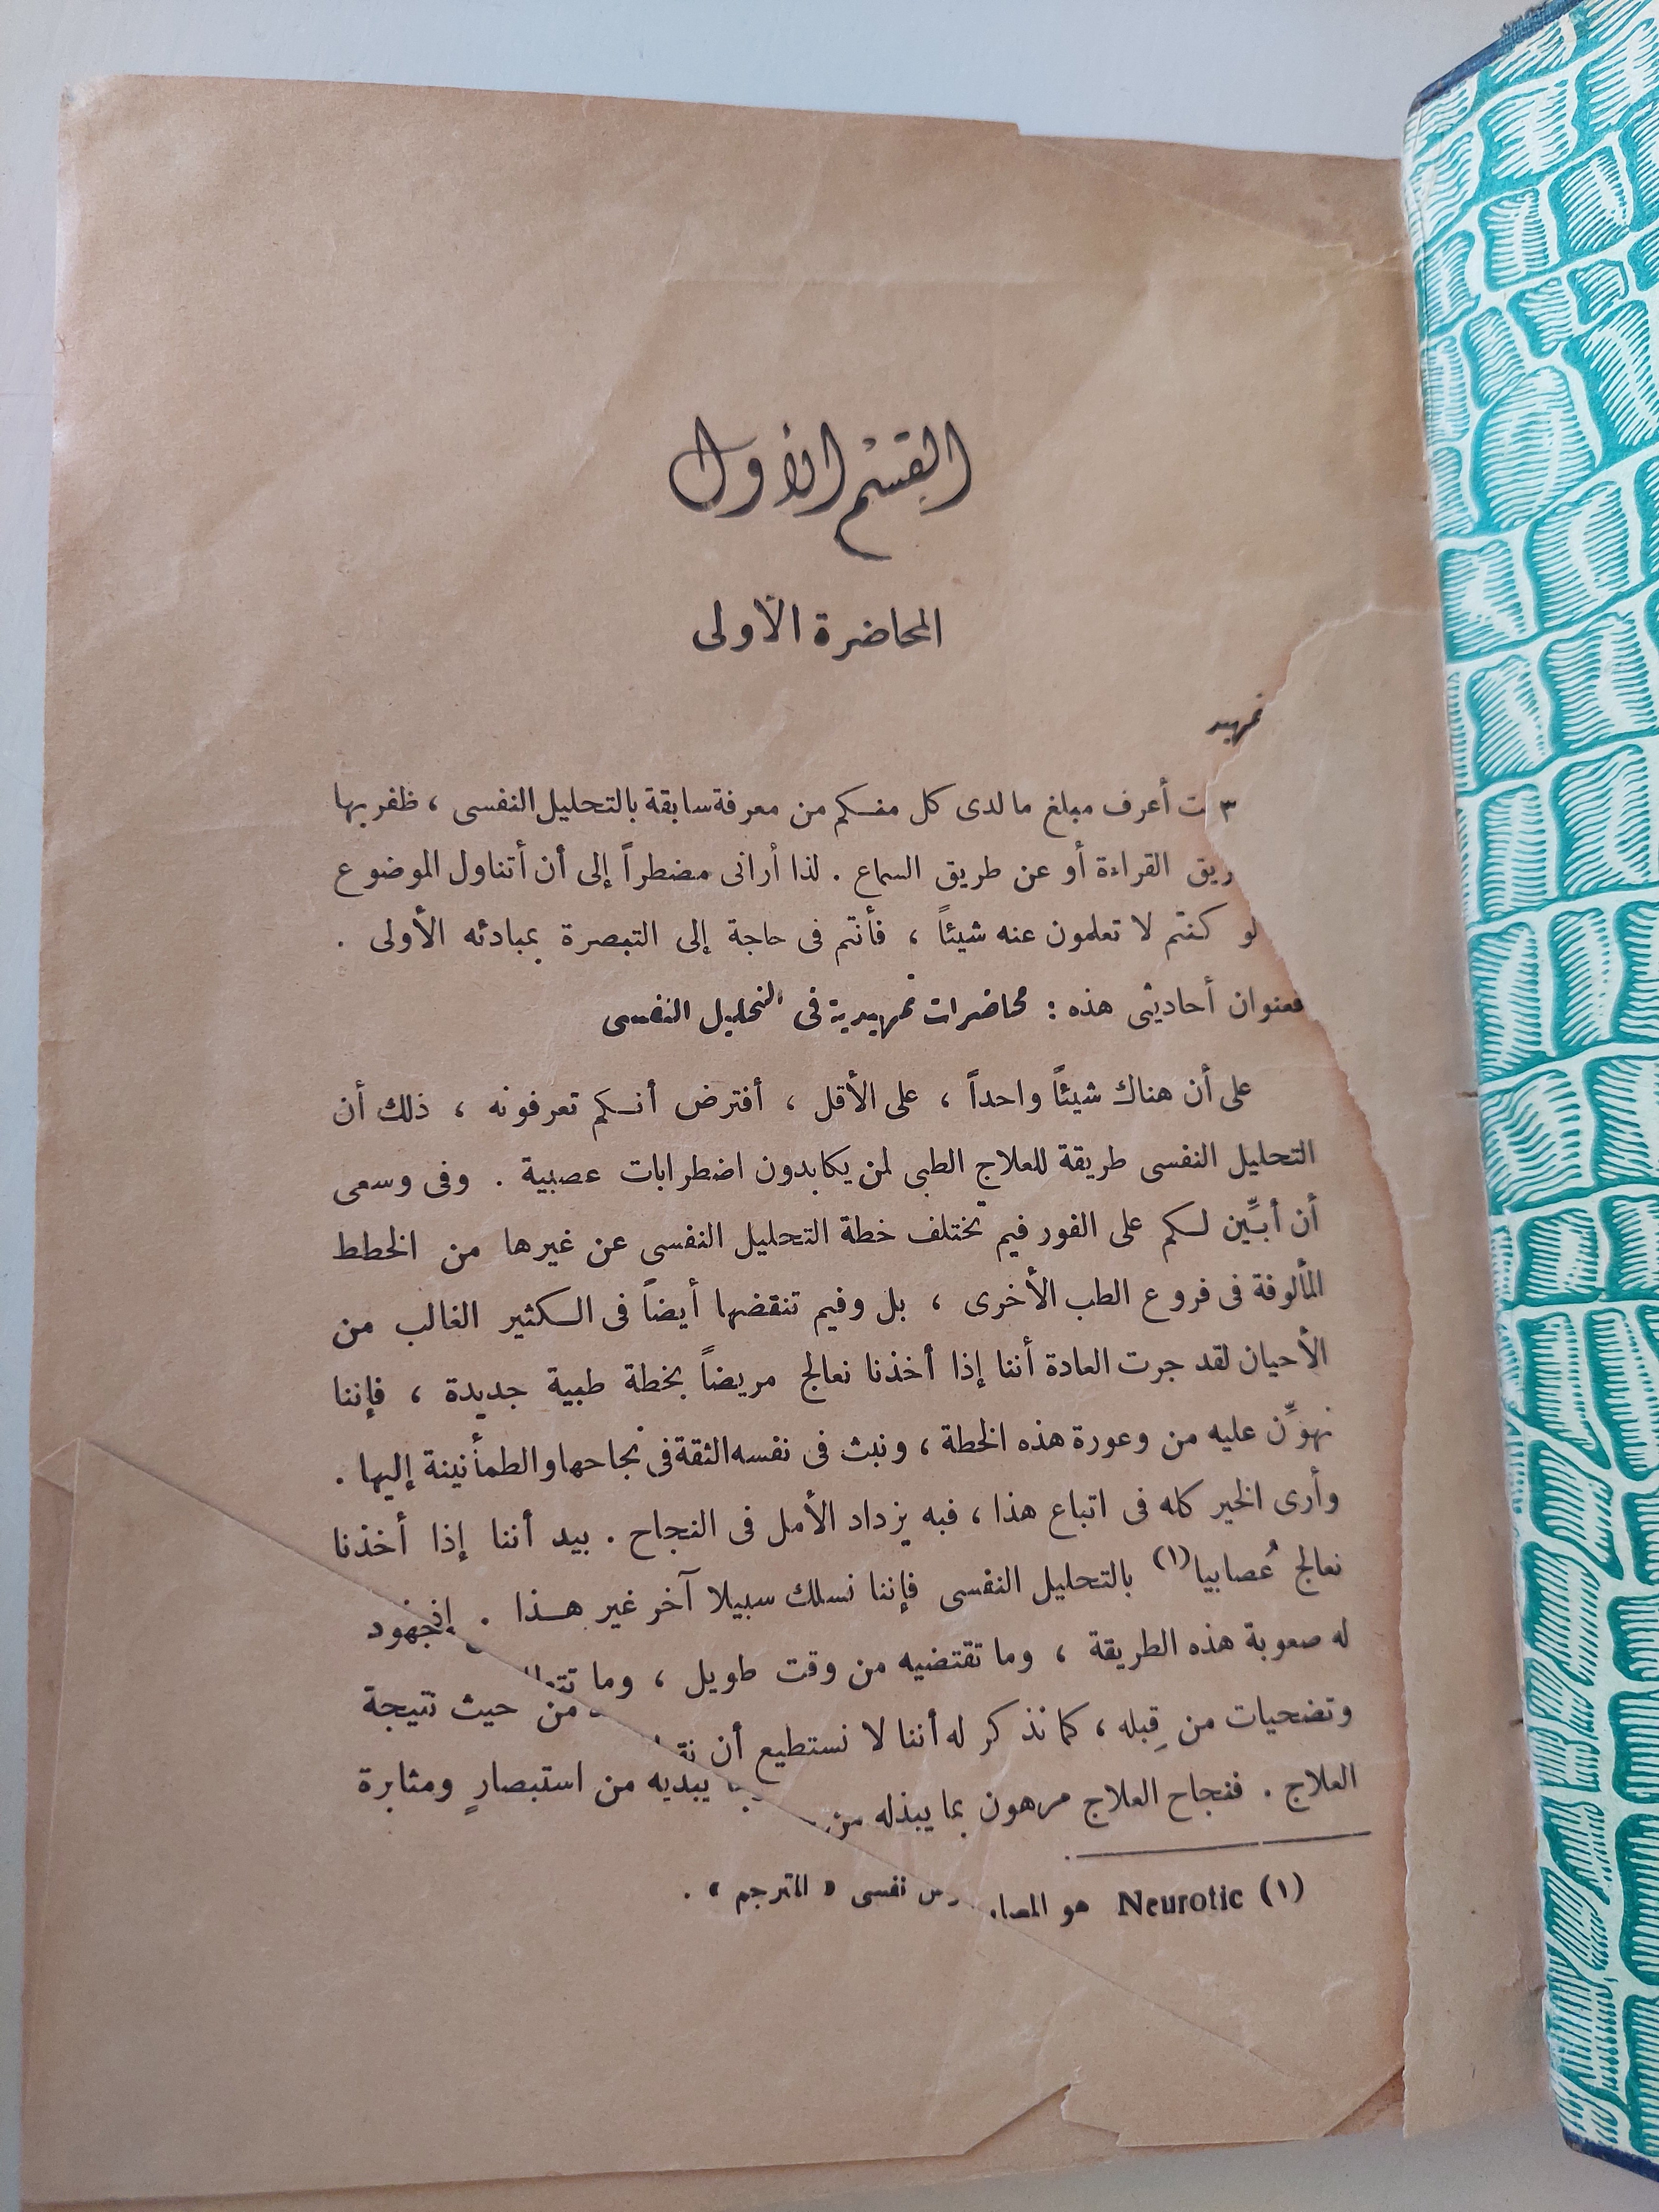 القسم الأول
المحاضرة الأولى
تمهيد
أعرف مبلغ ما لدى كل منكم من معرفة سابقة بالتحليل النفسى ، ظفر بها
القراءة أو عن طريق السماع . لذا أرانى مضطراً إلى أن أتناول الموضوع
لو كنتم لا تعلمون عنه شيئاً ، فأنتم فى حاجة إلى التبصرة بمبادئه الأولى .
فعنوان أحاديثى هذه : محاضرات تمهيدية فى التحليل النفسى
على أن هناك شيئاً واحداً ، على الأقل ، أفترض أنكم تعرفونه ، ذلك أن
التحليل النفسى طريقة للعلاج الطبى لمن يكابدون اضطرابات عصبية . وفى وسعى
أن أبيِّن لكم على الفور فيم تختلف خطة التحليل النفسى عن غيرها من الخطط
المألوفة فى فروع الطب الأخرى ، بل وفيم تنقضها أيضاً فى الكثير الغالب من
الأحيان لقد جرت العادة أننا إذا أخذنا نعالج مريضاً بخطة طبية جديدة ، فإننا
نهوِّن عليه من وعورة هذه الخطة ، ونبث فى نفسه الثقة فى نجاحها والطمأنينة إليها .
وأرى الخير كله فى اتباع هذا ، فبه يزداد الأمل فى النجاح . بيد أننا إذا أخذنا
نعالج عُصابيا (١) بالتحليل النفسى فإننا نسلك سبيلا آخر غير هذا .
له صعوبة هذه الطريقة ، وما تقتضيه من وقت طويل ، وما
وتضحيات من قِبله ، كما نذكر له أننا لا نستطيع أن من حيث نتيجة
العلاج . فنجاح العلاج مرهون بما يبذله من يبديه من استبصارٍ ومثابرة
(١) Neurotic هو نفسى « المترجم » .